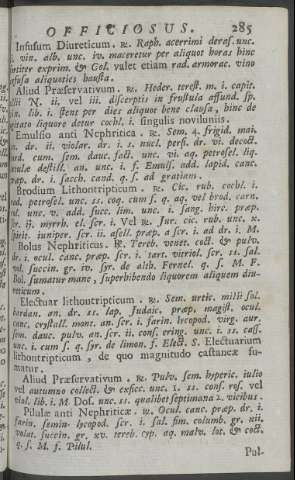 OFFICIOSUS. 285
Infusum Diureticum. ℞. Raph. acerrimi deras. unc.
vin. alb. unc. iv. maceretur per aliquot horas hinc
exprim. & Col. valet etiam rad. armorac. vino
infusa aliquoties hausta.
Aliud Præservativum. ℞. Heder. terest. m. i. capit.
N. ii. vel iii. discerptis in frustula affund. sp.
lib. i. stent per dies aliquot bene clausa, hinc de
liquore dentur cochl. i. singulis noviluniis.
Emulsio anti Nephritica. ℞. Sem. 4. frigid. mai.
dr. ii. violar. dr. i. s. nucl. persi. dr. vi. decoct.
cum. sem. dauc. fact. unc. vi. aq. petrosel. lig.
destill. an. unc. i. f. Emuls. add. lapid. canc.
præp. dr. i. sacch. cand. q. s. ad gratiam.
Brodium Lithontripticum. ℞. Cic. rub. cochl. i.
rad. petrosel. unc. ss. coq. cum s. q. aq. vel brod. carn.
unc. v. add. succ. lim. unc. i. sang. hirc. præp.
myrrh. el. scr. i. Vel ℞. Jur. cic. rub. unc. x.
spirit. juniper. scr. ii. asell. præp. a scr. i. ad dr. i. M.
Bolus Nephriticus. ℞. Tereb. venet. coct. & pulv.
dr. s. ocul. canc. præp. scr. i. tart. vitriol. scr. ss. sal.
succin. gr. iv. syr. de alth. Fernel. q. s. M. F.
Bol. sumatur mane, superbibendo liquorem aliquem diureticum.
Electuar lithontripticum. ℞. Sem. urtic. milii sol.
an. dr. ss. lap. Judaic. præp. magist. ocul.
canc. crystall. mont. an. scr. i. farin. lycopod. virg. aur.
sem. dauc. pulv. an. scr. ii. cons. cring. unc. i. ss. cass.
unc. i. cum s. q. syr. de limon. f. Elect. S. Electuarium
lithontripticum, de quo magnitudo castaneæ sumatur.
Aliud Præservativum. ℞. Pulv. sem. hyperic. iulio
vel autumno collect. & exsicc. unc. i. ss. cons. ros. vel
viol. lib. i. M. Dos. unc. ss. qualibet septimana 2. vicibus.
Pilulæ anti Nephriticæ. ℞. Ocul. canc. præp. dr. i.
farin. semin. lycopod. scr. i. sal. fim. columb. gr. xii.
volat. succin. gr. xv. tereb. cyp. aq. malv. lot. & coct.
q. s. M. f. Pilul.
Pul-